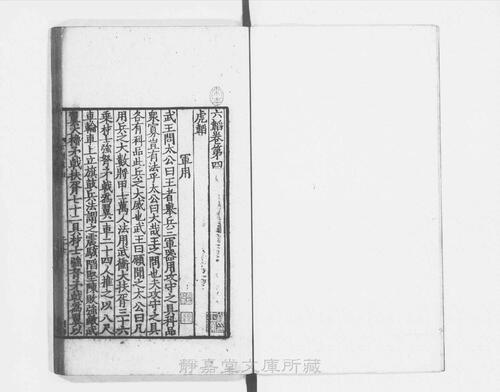 六韜卷第四
虎韜
軍用
武王問太公曰王者舉兵三軍器用攻守之具科品
衆寡豈有法乎太公曰大哉王之問也夫攻守之具
各有科品此兵之大威也武王曰願聞之太公曰凡
用兵之大數將甲士萬人法用武衝大扶胥三十六
乘材士強弩矛戟爲翼一車二十四人推之以八尺
車輪車上立旗鼓兵法謂之震駭陷堅陳敗強敵武
翼大櫓矛戟扶胥七十二具材士強弩矛戟爲翼以
靜嘉堂文庫所藏